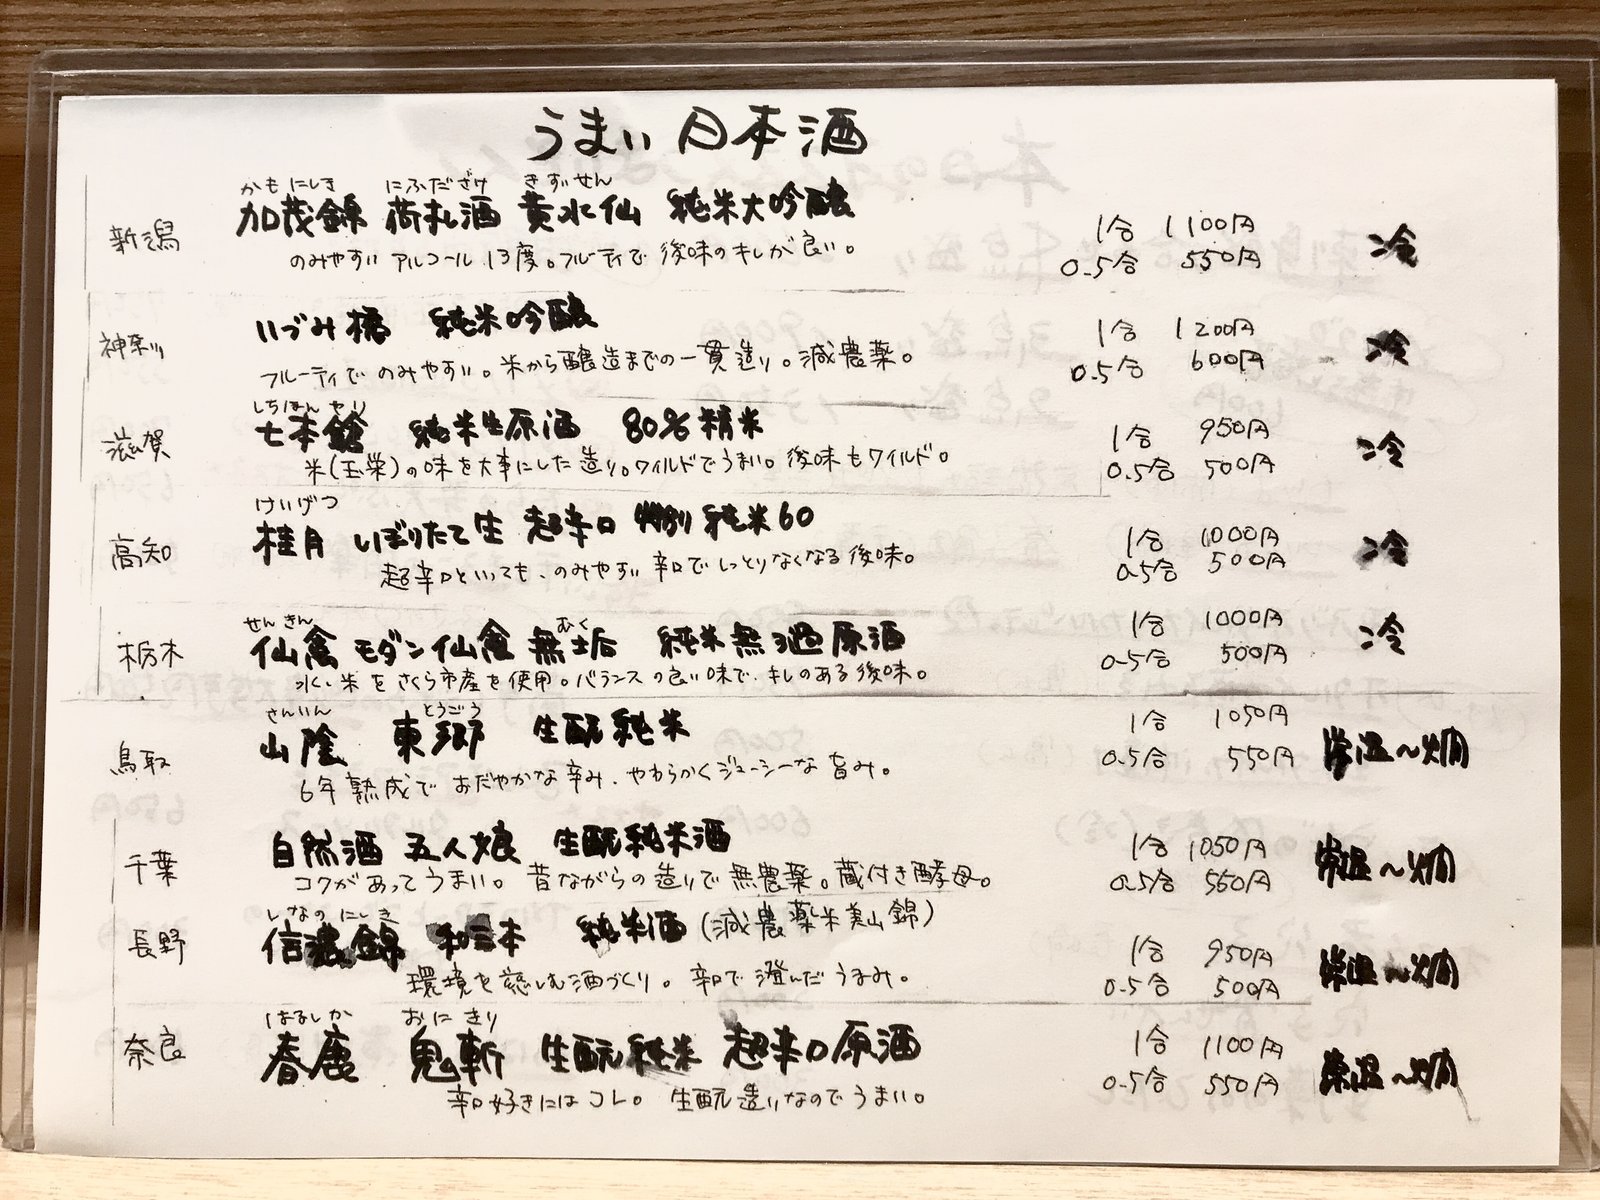 うまい 日本酒
かもにしき にふだざけ きずいせん
新潟 加茂錦 荷札酒 黄水仙 純米大吟醸 1合 1100円 冷
のみやすい アルコール 13度。フルーティで 後味のキレが良い。 0.5合 550円
神奈川 いづみ橋 純米吟醸 1合 1200円 冷
フルーティで のみやすい。米から醸造までの一貫造り。減農薬。 0.5合 600円
しちほんやり
滋賀 七本鎗 純米生原酒 80%精米 1合 950円 冷
米(玉栄)の味を大事にした造り。ワイルドでうまい。後味もワイルド。 0.5合 500円
けいげつ
高知 桂月 しぼりたて生 超辛口 特別純米60 1合 1000円 冷
超辛口といっても、のみやすい 辛口で しっとりなくなる後味。 0.5合 500円
せんきん むく
栃木 仙禽 モダン仙禽 無垢 純米無ろ過原酒 1合 1000円 冷
水、米をさくら市産を使用。バランスの良い味で、キレのある後味。 0.5合 500円
さんいん とうごう
鳥取 山陰 東郷 生酛純米 1合 1050円 常温〜燗
6年熟成で おだやかな辛み、やわらかくジューシーな旨み。 0.5合 550円
千葉 自然酒 五人娘 生酛純米酒 1合 1050円 常温〜燗
コクがあってうまい。昔ながらの造りで無農薬。蔵付き酵母。 0.5合 550円
しなの にしき
長野 信濃錦 和三本 純米酒 (減農薬米美山錦) 1合 950円 常温〜燗
環境を慈しむ酒づくり。辛口で澄んだうまみ。 0.5合 500円
はるしか おに きり
奈良 春鹿 鬼斬 生酛純米 超辛口原酒 1合 1100円 常温〜燗
辛口好きにはコレ。生酛造りなのでうまい。 0.5合 550円